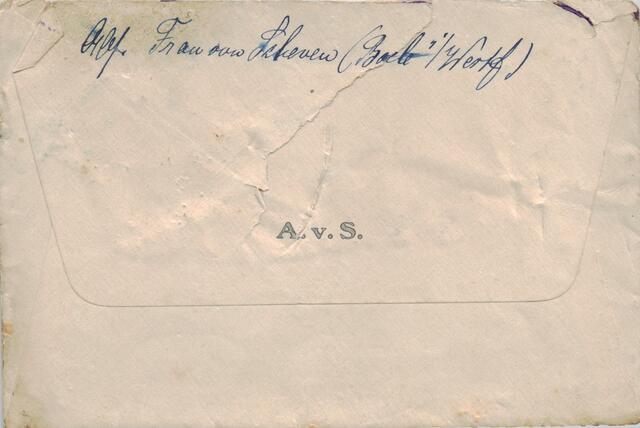 Frau von Scheven (Boele i/Westf.)
A. v. S.